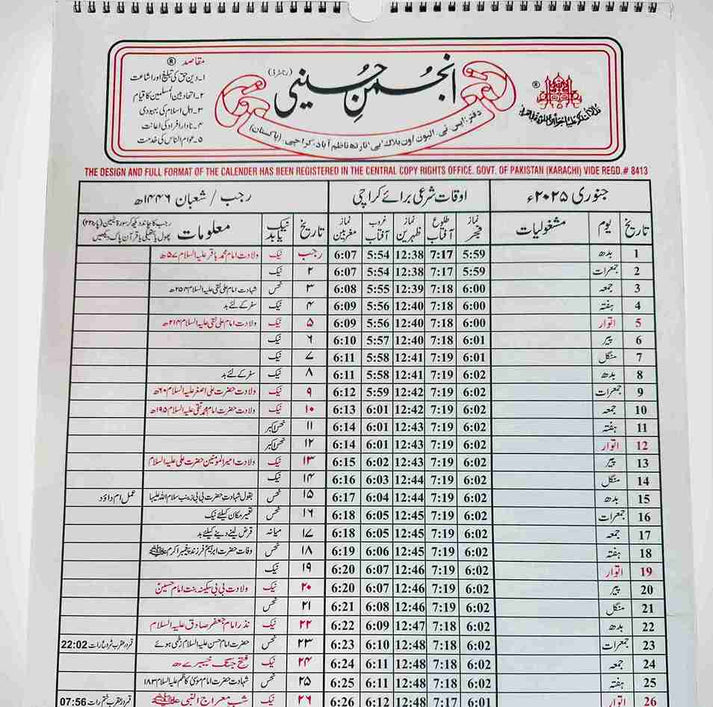 مقاصد ®
۱۔ دین حق کی تبلیغ اور اشاعت
۲۔ اتحاد بین المسلمین کا قیام
۳۔ اہل اسلام کی بہبودی
۴۔ نادار افراد کی اعانت
۵۔ عوام الناس کی خدمت
انجمن حسینی (رجسٹرڈ)
THE DESIGN AND FULL FORMAT OF THE CALENDER HAS BEEN REGISTERED IN THE CENTRAL COPY RIGHTS OFFICE. GOVT. OF PAKISTAN (KARACHI) VIDE REGD.# 8413
جنوری ۲۰۲۵ء اوقات شرعی برائے کراچی رجب / شعبان ۱۴۴۶ھ
تاریخ یوم مشغولیات نماز فجر طلوع آفتاب نماز ظہرین غروب آفتاب نماز مغربین تاریخ نیک یا بد معلومات
1 بدھ 5:59 7:17 12:38 5:54 6:07 رجب نیک ولادت امام محمد باقر علیہ السلام ۵۷ھ
2 جمعرات 5:59 7:17 12:38 5:54 6:07 ۲ نیک
3 جمعہ 6:00 7:18 12:39 5:55 6:08 ۳ نحس شہادت امام علی نقی علیہ السلام ۲۵۴ھ
4 ہفتہ 6:00 7:18 12:40 5:56 6:09 ۴ نیک سفر کے لئے بد
5 اتوار 6:00 7:18 12:40 5:56 6:09 ۵ نیک ولادت امام علی نقی علیہ السلام ۲۱۴ھ
6 پیر 6:01 7:18 12:40 5:57 6:10 ۶ نیک
7 منگل 6:01 7:19 12:41 5:58 6:11 ۷ نیک
8 بدھ 6:02 7:19 12:41 5:58 6:11 ۸ نیک سفر کے لئے بد
9 جمعرات 6:02 7:19 12:42 5:59 6:12 ۹ نیک ولادت حضرت علی اصغر علیہ السلام ۶۰ھ
10 جمعہ 6:02 7:19 12:42 6:01 6:13 ۱۰ نیک ولادت حضرت امام محمد تقی علیہ السلام ۱۹۵ھ
11 ہفتہ 6:02 7:19 12:43 6:01 6:14 ۱۱ نحس اکبر
12 اتوار 6:02 7:19 12:43 6:01 6:14 ۱۲ نحس اکبر
13 پیر 6:02 7:19 12:43 6:02 6:15 ۱۳ نیک ولادت امیر المومنین حضرت علی علیہ السلام
14 منگل 6:02 7:19 12:44 6:03 6:16 ۱۴ نیک
15 بدھ 6:02 7:19 12:44 6:04 6:17 ۱۵ نحس بقول شہادت حضرت بی بی زینب سلام اللہ علیہا عمل ام داؤد
16 جمعرات 6:02 7:19 12:45 6:05 6:18 ۱۶ نحس تعمیر مکان کیلئے نیک
17 جمعہ 6:02 7:19 12:45 6:05 6:18 ۱۷ میانہ قرض لینے دینے کیلئے بد
18 ہفتہ 6:02 7:19 12:45 6:06 6:19 ۱۸ نحس وفات حضرت ابراہیم فرزند پیغمبر اکرم ﷺ
19 اتوار 6:02 7:19 12:46 6:07 6:20 ۱۹ نیک
20 پیر 6:02 7:19 12:46 6:07 6:20 ۲۰ نیک ولادت بی بی سکینہ بنت امام حسین
21 منگل 6:02 7:19 12:46 6:08 6:21 ۲۱ نحس
22 بدھ 6:02 7:18 12:47 6:09 6:22 ۲۲ نیک نذر امام جعفر صادق علیہ السلام
23 جمعرات 6:02 7:18 12:48 6:10 6:23 ۲۳ نحس حضرت امام حسن علیہ السلام زخمی ہوئے 22:02
24 جمعہ 6:02 7:18 12:48 6:11 6:24 ۲۴ نیک فتح جنگ خیبر ۷ھ
25 ہفتہ 6:02 7:18 12:48 6:11 6:25 ۲۵ نحس شہادت امام موسیٰ کاظم علیہ السلام ۱۸۳
26 اتوار 6:01 7:17 12:48 6:12 6:26 ۲۶ نیک شب معراج النبی ﷺ 07:56